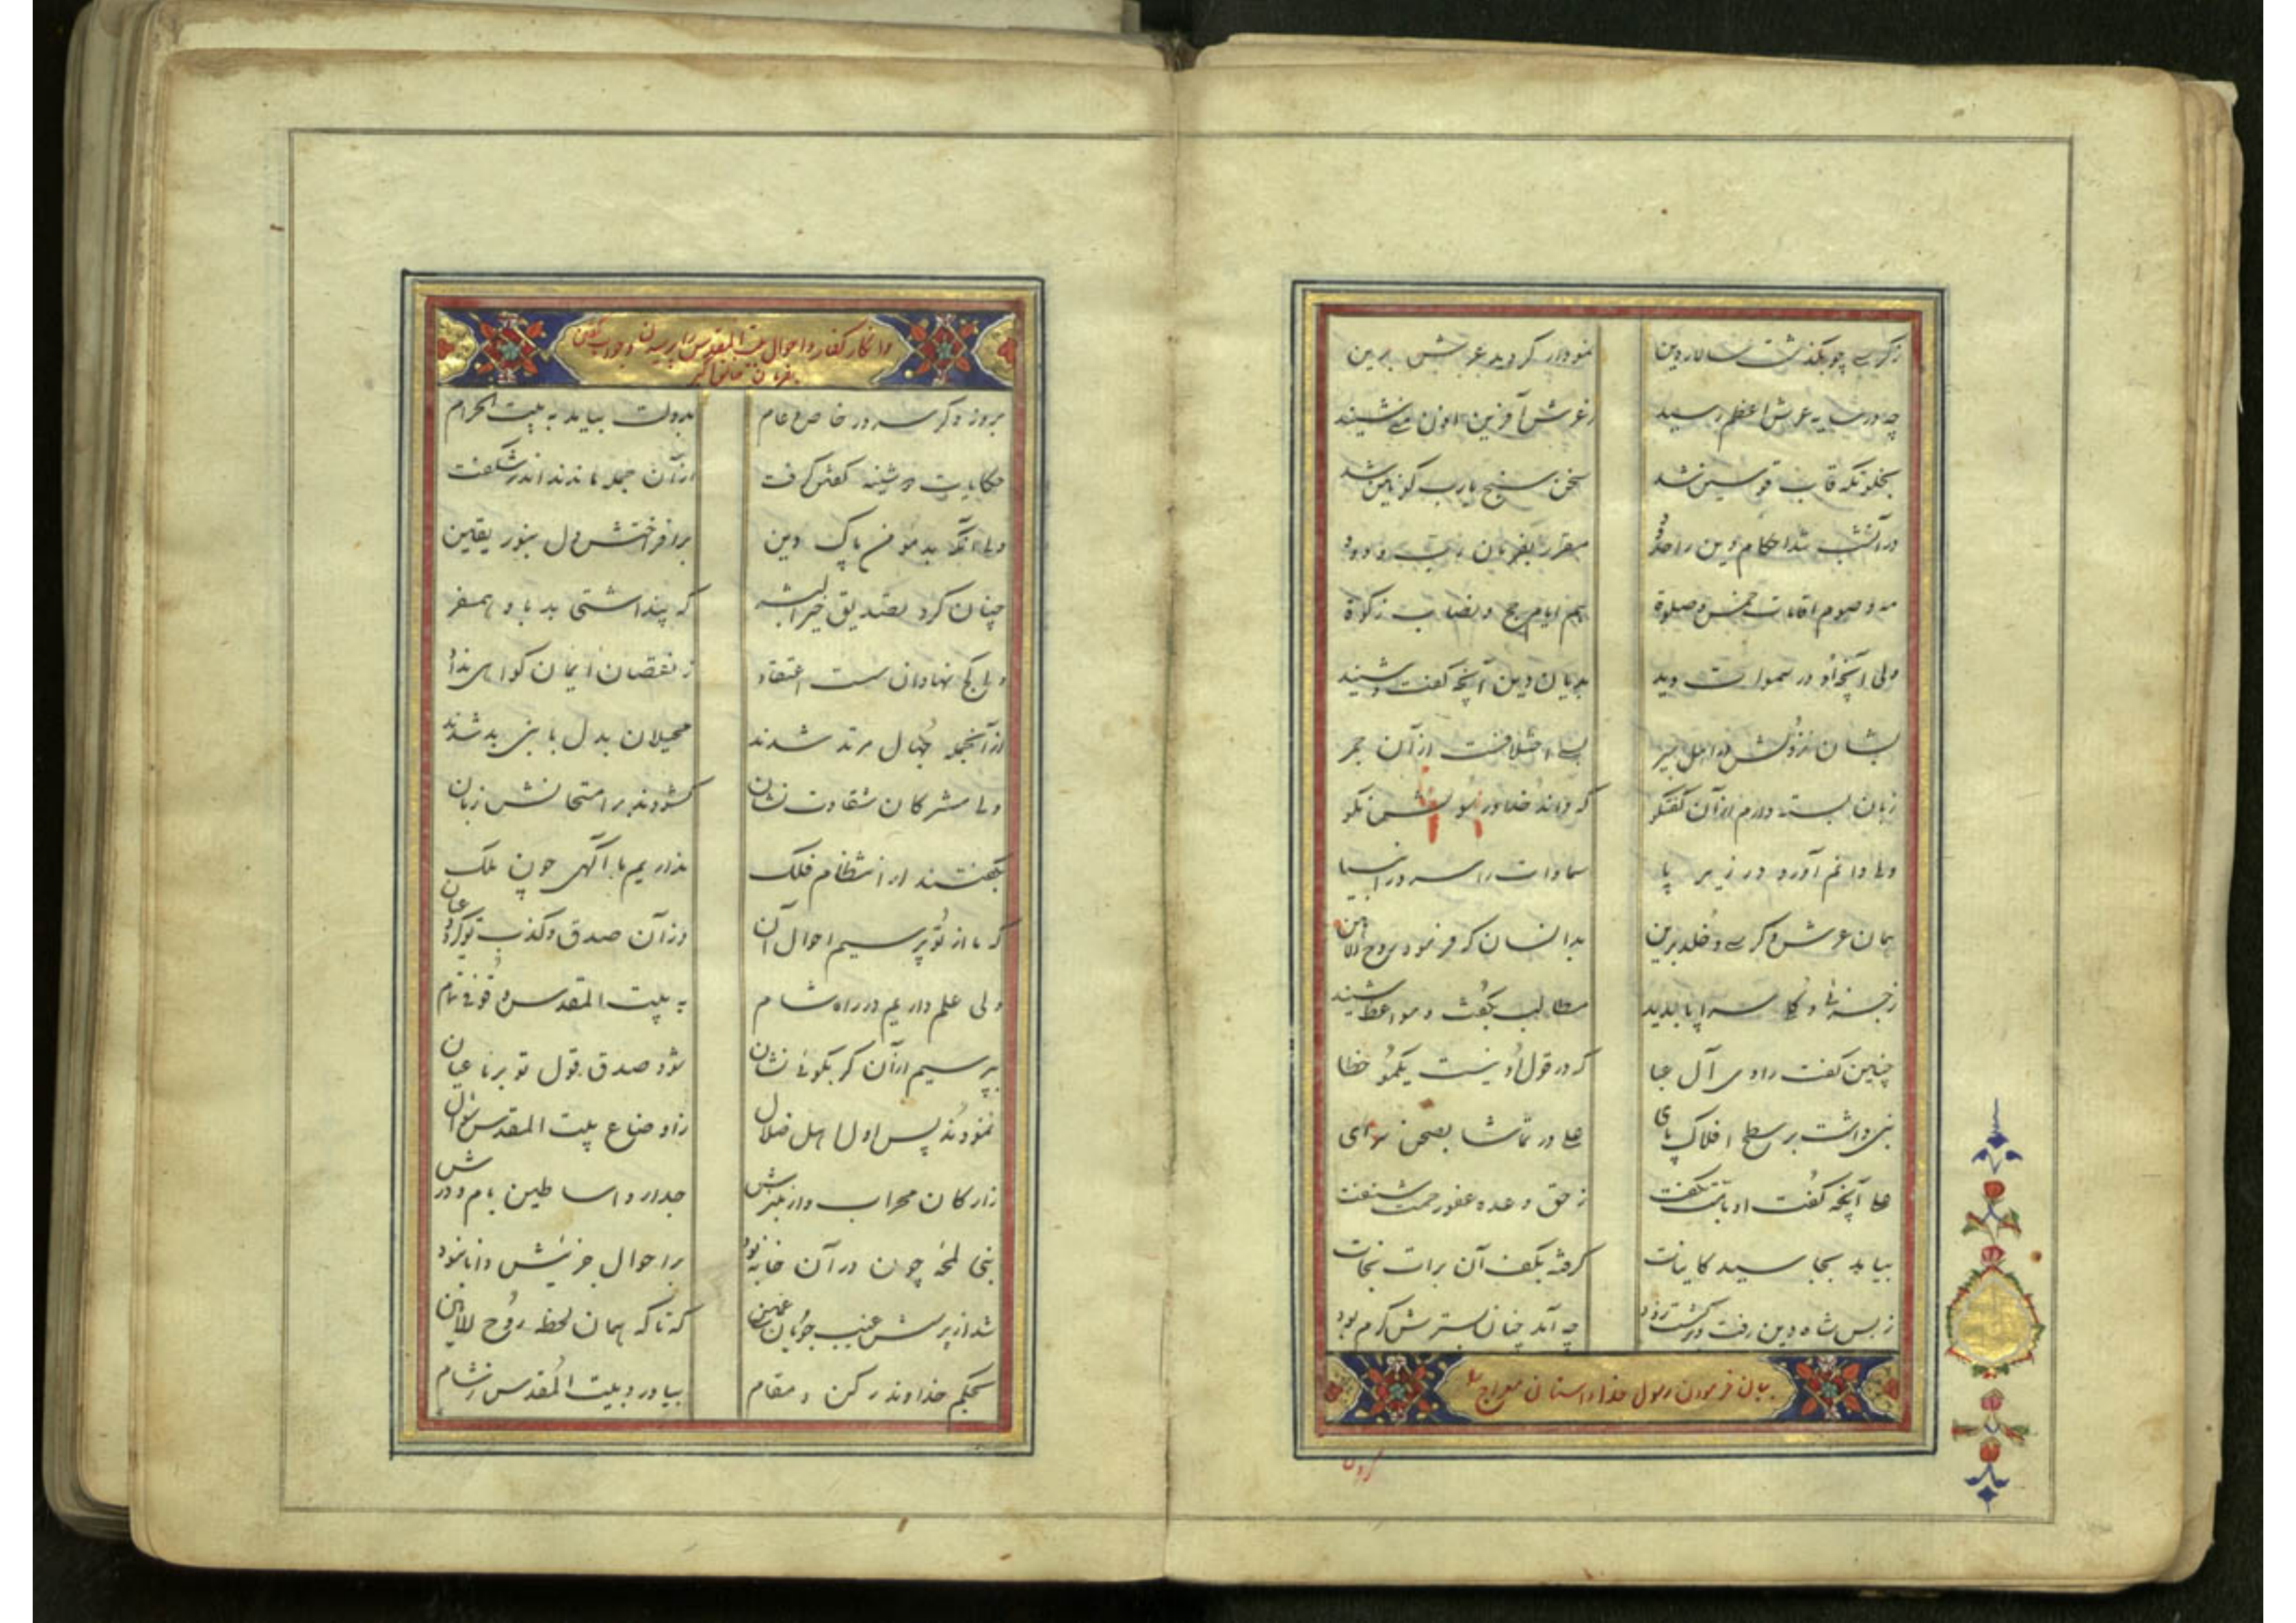 ز کرسی چو بگذشت سالار دین نمودار گردید عرش برین
چه در سایهٔ عرش اعظم رسید ز عرش آفرین ادن منی شنید
بخلوتگه قاب قوسین شد سخن سنج یا رب کونین شد
در آنشب شد احکام دین را حدود مقرر بفرمان رب ودود
صوم اوقات خمس و صلوة هم ایام حج و نصاب زکوة
ولی آنچه او در سموات دید بدیان دین آنچه گفت و شنید
بشان نزولش ز اهل سیر بسی اختلافست از آن خبر
زبان بسته دارم از آن گفتگو که داند خداوند
ولی دانم آورد در زیر پا سماوات را سرور انبیا
همان عرش و کرسی و خلد برین بدانسان که فرمود روح الامین
ز جزئی و کلی سراپا بدید مطالب بگفت و مواعظ شنید
چنین گفت راوی آل عبا که در قول او نیست یکمو خطا
نبی داشت بر سطح افلاک پای علی در تماشا بصحن سرای
علی آنچه گفت او بامت نگفت ز حق وعده عفو رحمت شنفت
بیامد بجا سید کاینات گرفته بکف آن برات نجات
ز بس شاه دین رفت و برگشت زود چه آمد چنان بسترش گرم بود
بیان فرمودن رسول خدا داستان معراج را
وانکار کفار و احوال بیت المقدس را پرسیدن و جواب گفتن
بفرمان خالق اکبر
بروز دگر سرور خاص و عام بدولت بیامد به بیت الحرام
حکایات دوشینه گفتن گرفت از آن جمله ماندند اندر شگفت
ولی آنکه بد مؤمن پاک دین برافراختش دل بنور یقین
چنان کرد تصدیق خیر البشر که پنداشتی بد با و همسفر
ولی کج نهادان سست اعتقاد ز نقصان ایمان گواهی نداد
از آنجمله جهال مرتد شدند محیلان بدل با نبی بد شدند
ولی مشرکان شقاوت نشان گشودند بر امتحانش زبان
بگفتند از انتظام فلک نداریم ما آگهی چون ملک
که ما از تو پرسیم احوال آن وز آن صدق و کذب تو گردد عیان
ولی علم داریم در راه شام به بیت المقدس وقوفی تمام
بپرسیم از آن گر بگوئی نشان شود صدق قول تو بر ما عیان
نمودند پس اول اهل ضلال ز اوضاع بیت المقدس سؤال
ز ارکان محراب و از منبرش جدار و اساطین بام و درش
نبی لمحهٔ چون در آن خانه بود بر احوال جزئیش دانا نبود
شد از پرسش عیب جویان غمین که ناگه همان لحظه روح الامین
بحکم خداوند رکن و مقام بیاورد بیت المقدس ز شام